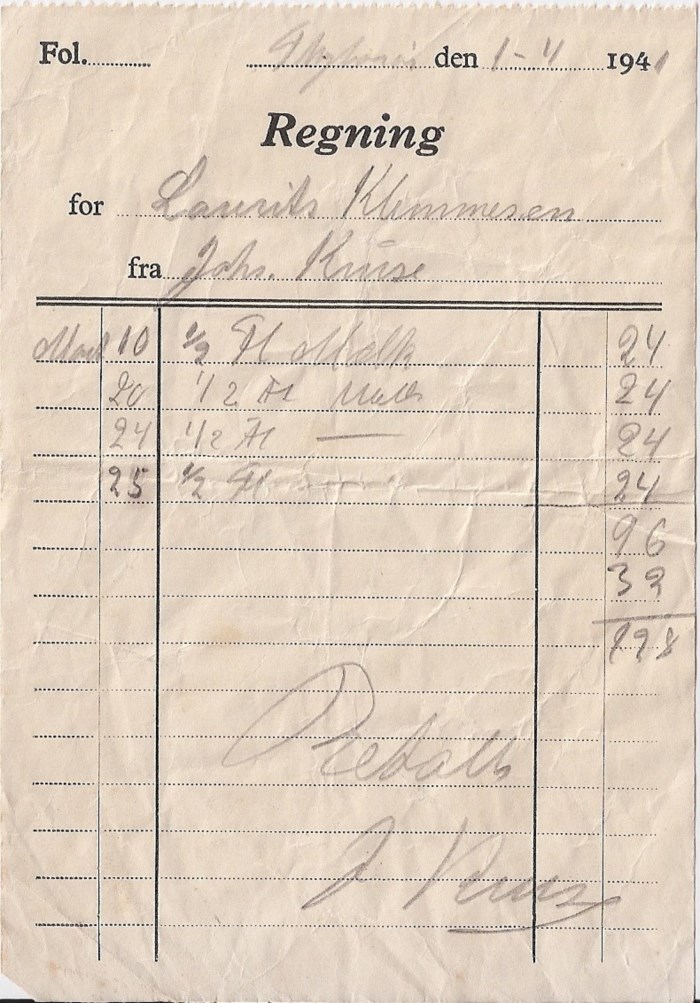 Fol. den 1-4 1941
Regning
for Laurits Klemmesen
fra Johs. Kruse
10 1/2 Fl Mælk 24
20 1/2 Fl Mælk 24
24 1/2 Fl — 24
25 1/2 Fl — 24
96
32
128
Betalt
J Kruse